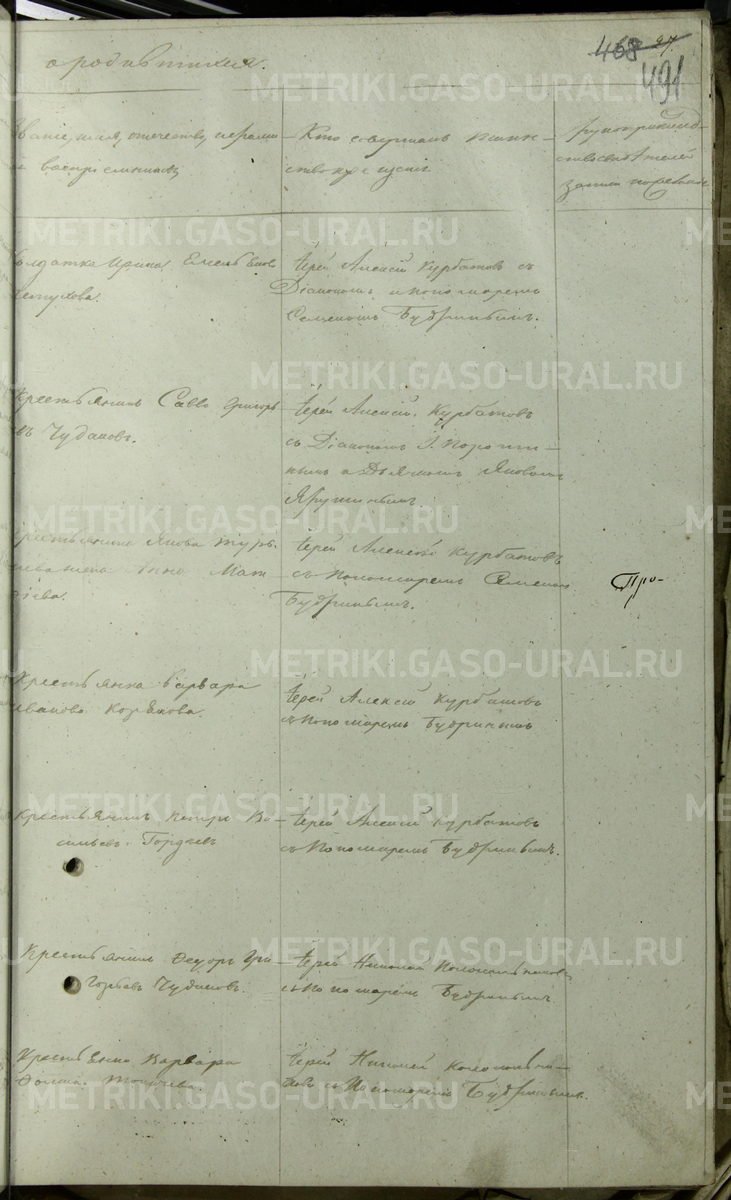 о родившихся.
468 27.
491
Званіе, имя, отечество, и фамилія воспріемниковъ
Кто совершалъ таинство крещенія
Рукоприкладство свидѣтелей записи по желанію
Солдатка Ирина Емельянова
Іерей Алексій Курбатовъ съ
Діакономъ и пономаремъ
Семеномъ Будринымъ.
Крестьянинъ Савва Григорьевъ Чудановъ.
Іерей Алексій Курбатовъ
съ Діакономъ І.
и Дьячкомъ Яковомъ
Крестьянина Якова
жена Анна
Іерей Алексѣй Курбатовъ
съ пономаремъ Семеномъ
Будринымъ.
Про-
Крестьянка Варвара
Иванова
Іерей Алексій Курбатовъ
съ Пономаремъ Будринымъ
Крестьянинъ Петръ Васильевъ Гордѣевъ
Іерей Алексій Курбатовъ
съ Пономаремъ Будринымъ.
Крестьянинъ Ѳедоръ Григорьевъ Чудановъ.
Іерей Николай Колокольниковъ
съ Пономаремъ Будринымъ
Крестьянка Варвара
Іерей Николай Колокольниковъ съ Пономаремъ Будринымъ.
METRIKI.GASO-URAL.RU